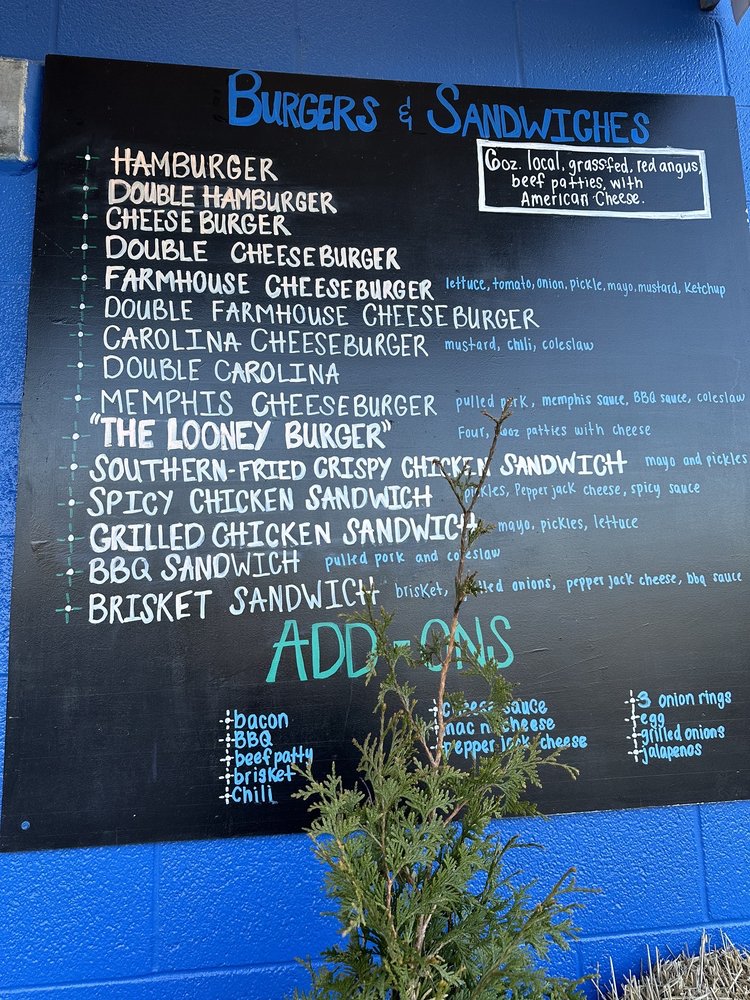 BURGERS & SANDWICHES
6oz. local, grassfed, red angus,
beef patties, with
American Cheese.
HAMBURGER
DOUBLE HAMBURGER
CHEESEBURGER
DOUBLE CHEESEBURGER
FARMHOUSE CHEESEBURGER lettuce, tomato, onion, pickle, mayo, mustard, ketchup
DOUBLE FARMHOUSE CHEESEBURGER
CAROLINA CHEESEBURGER mustard, chili, coleslaw
DOUBLE CAROLINA
MEMPHIS CHEESEBURGER pulled pork, memphis sauce, BBQ sauce, coleslaw
"THE LOONEY BURGER" Four, patties with cheese
SOUTHERN-FRIED CRISPY CHICKEN SANDWICH mayo and pickles
SPICY CHICKEN SANDWICH pickles, Pepper jack cheese, spicy sauce
GRILLED CHICKEN SANDWICH mayo, pickles, lettuce
BBQ SANDWICH pulled pork and coleslaw
BRISKET SANDWICH brisket, onions, pepper jack cheese, bbq sauce
ADD-ONS
bacon
BBQ
beef patty
brisket
chili
cheese sauce
mac n cheese
pepper jack cheese
3 onion rings
egg
grilled onions
jalapenos